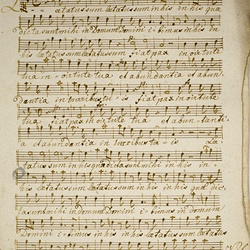 Lætatus sum Lætatus sum in his in his quæ
dicta sunt mihi in Domum Domini ibimus in his in
Lætatus sum fiat pax in virtute
tua in virtute tua et abundantia et abun
dantia in turribus tuis fiat pax in virtute
tua fiat pax in virtute tua et abundanti
a et abundantia in turribus tuis Læ
tatus sum in his quæ dicta sunt mihi in his in
his Lætatus sum Lætatus sum in his in his quæ dic
ta sunt mihi in Domum Domini ibimus in domum
Domini ibimus in his in his Lætatus